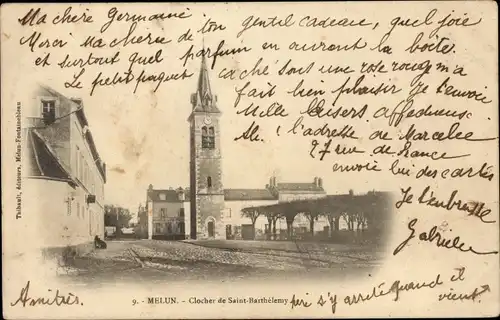 Ma chère Germaine
Merci Ma chère de ton gentil cadeau, quel joie
et surtout quel parfum en ouvrant la boîte.
Le petit paquet caché sous une rose rouge m'a
fait bien plaisir. Je t'envoie
Mille baisers affectueux.
l'adresse de Marcelle
27 rue de France
envoie lui des cartes
Je t'embrasse
Gabrielle
Amitiés
Thibault, éditeurs, Melun-Fontainebleau
9. - MELUN. - Clocher de Saint-Barthélemy
Quand et
vient